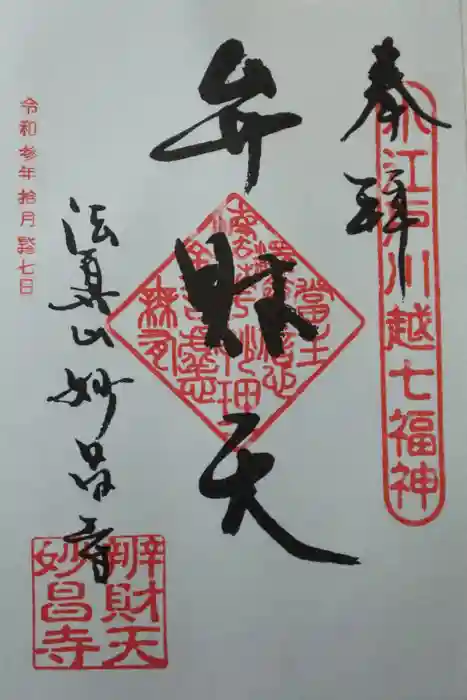 奉拝
小江戸川越七福神
弁財天
當生
法眞山 妙昌寺
辨財天
妙昌寺
令和参年拾月 七日